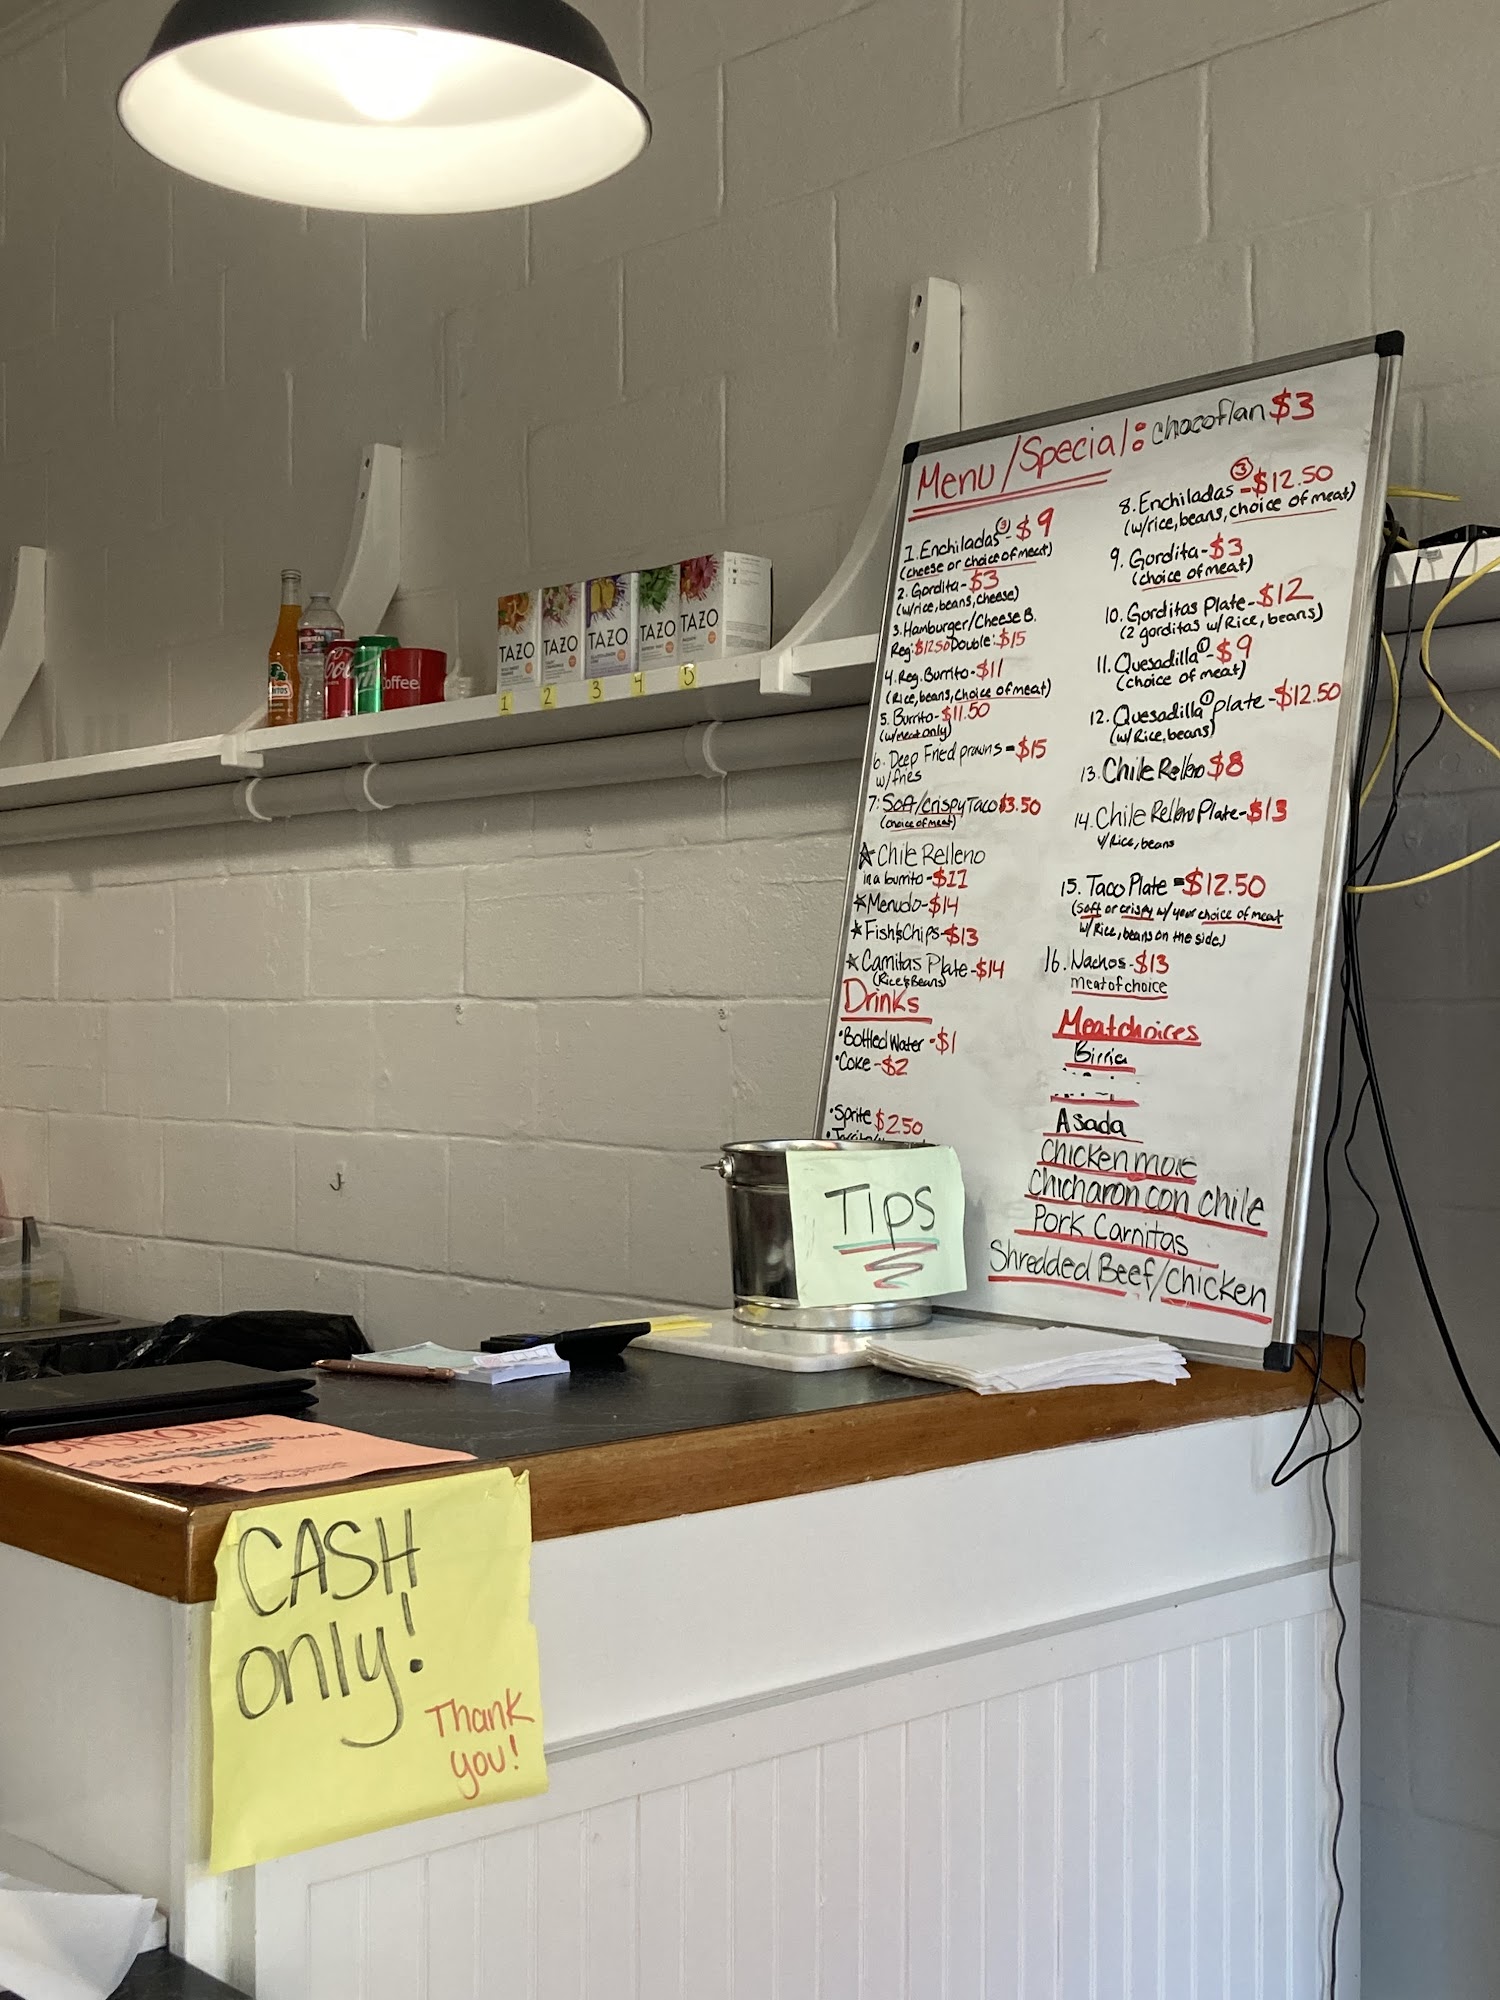 Menu/Special: Chocoflan $3
1. Enchiladas ③ - $9
(cheese or choice of meat)
2. Gordita - $3
(w/rice, beans, cheese)
3. Hamburger/Cheese B.
Reg: $12.50 Double: $15
4. Reg. Burrito - $11
(Rice, beans, choice of meat)
5. Burrito - $11.50
(w/meat only)
6. Deep Fried prawns - $15
w/fries
7. Soft/crispy Taco $3.50
(choice of meat)
☆ Chile Relleno
in a burrito - $11
★ Menudo - $14
★ Fish & Chips - $13
★ Carnitas Plate - $14
(Rice & Beans)
Drinks
• Bottled Water - $1
• Coke - $2
• Sprite $2.50
8. Enchiladas ③ - $12.50
(w/rice, beans, choice of meat)
9. Gordita - $3
(choice of meat)
10. Gorditas Plate - $12
(2 gorditas w/ Rice, beans)
11. Quesadilla ① - $9
(choice of meat)
12. Quesadilla ① plate - $12.50
(w/ Rice, beans)
13. Chile Relleno $8
14. Chile Relleno Plate - $13
w/Rice, beans
15. Taco Plate = $12.50
(soft or crispy w/ your choice of meat
w/ Rice, beans on the side)
16. Nachos - $13
meat of choice
Meat choices
Birria
Asada
Chicken mole
Chicharon con chile
Pork Carnitas
Shredded Beef/Chicken
TAZO
TAZO
TAZO
TAZO
TAZO
1
2
3
4
5
Coffee
TIPS
CASH ONLY
CASH
only!
Thank
you!